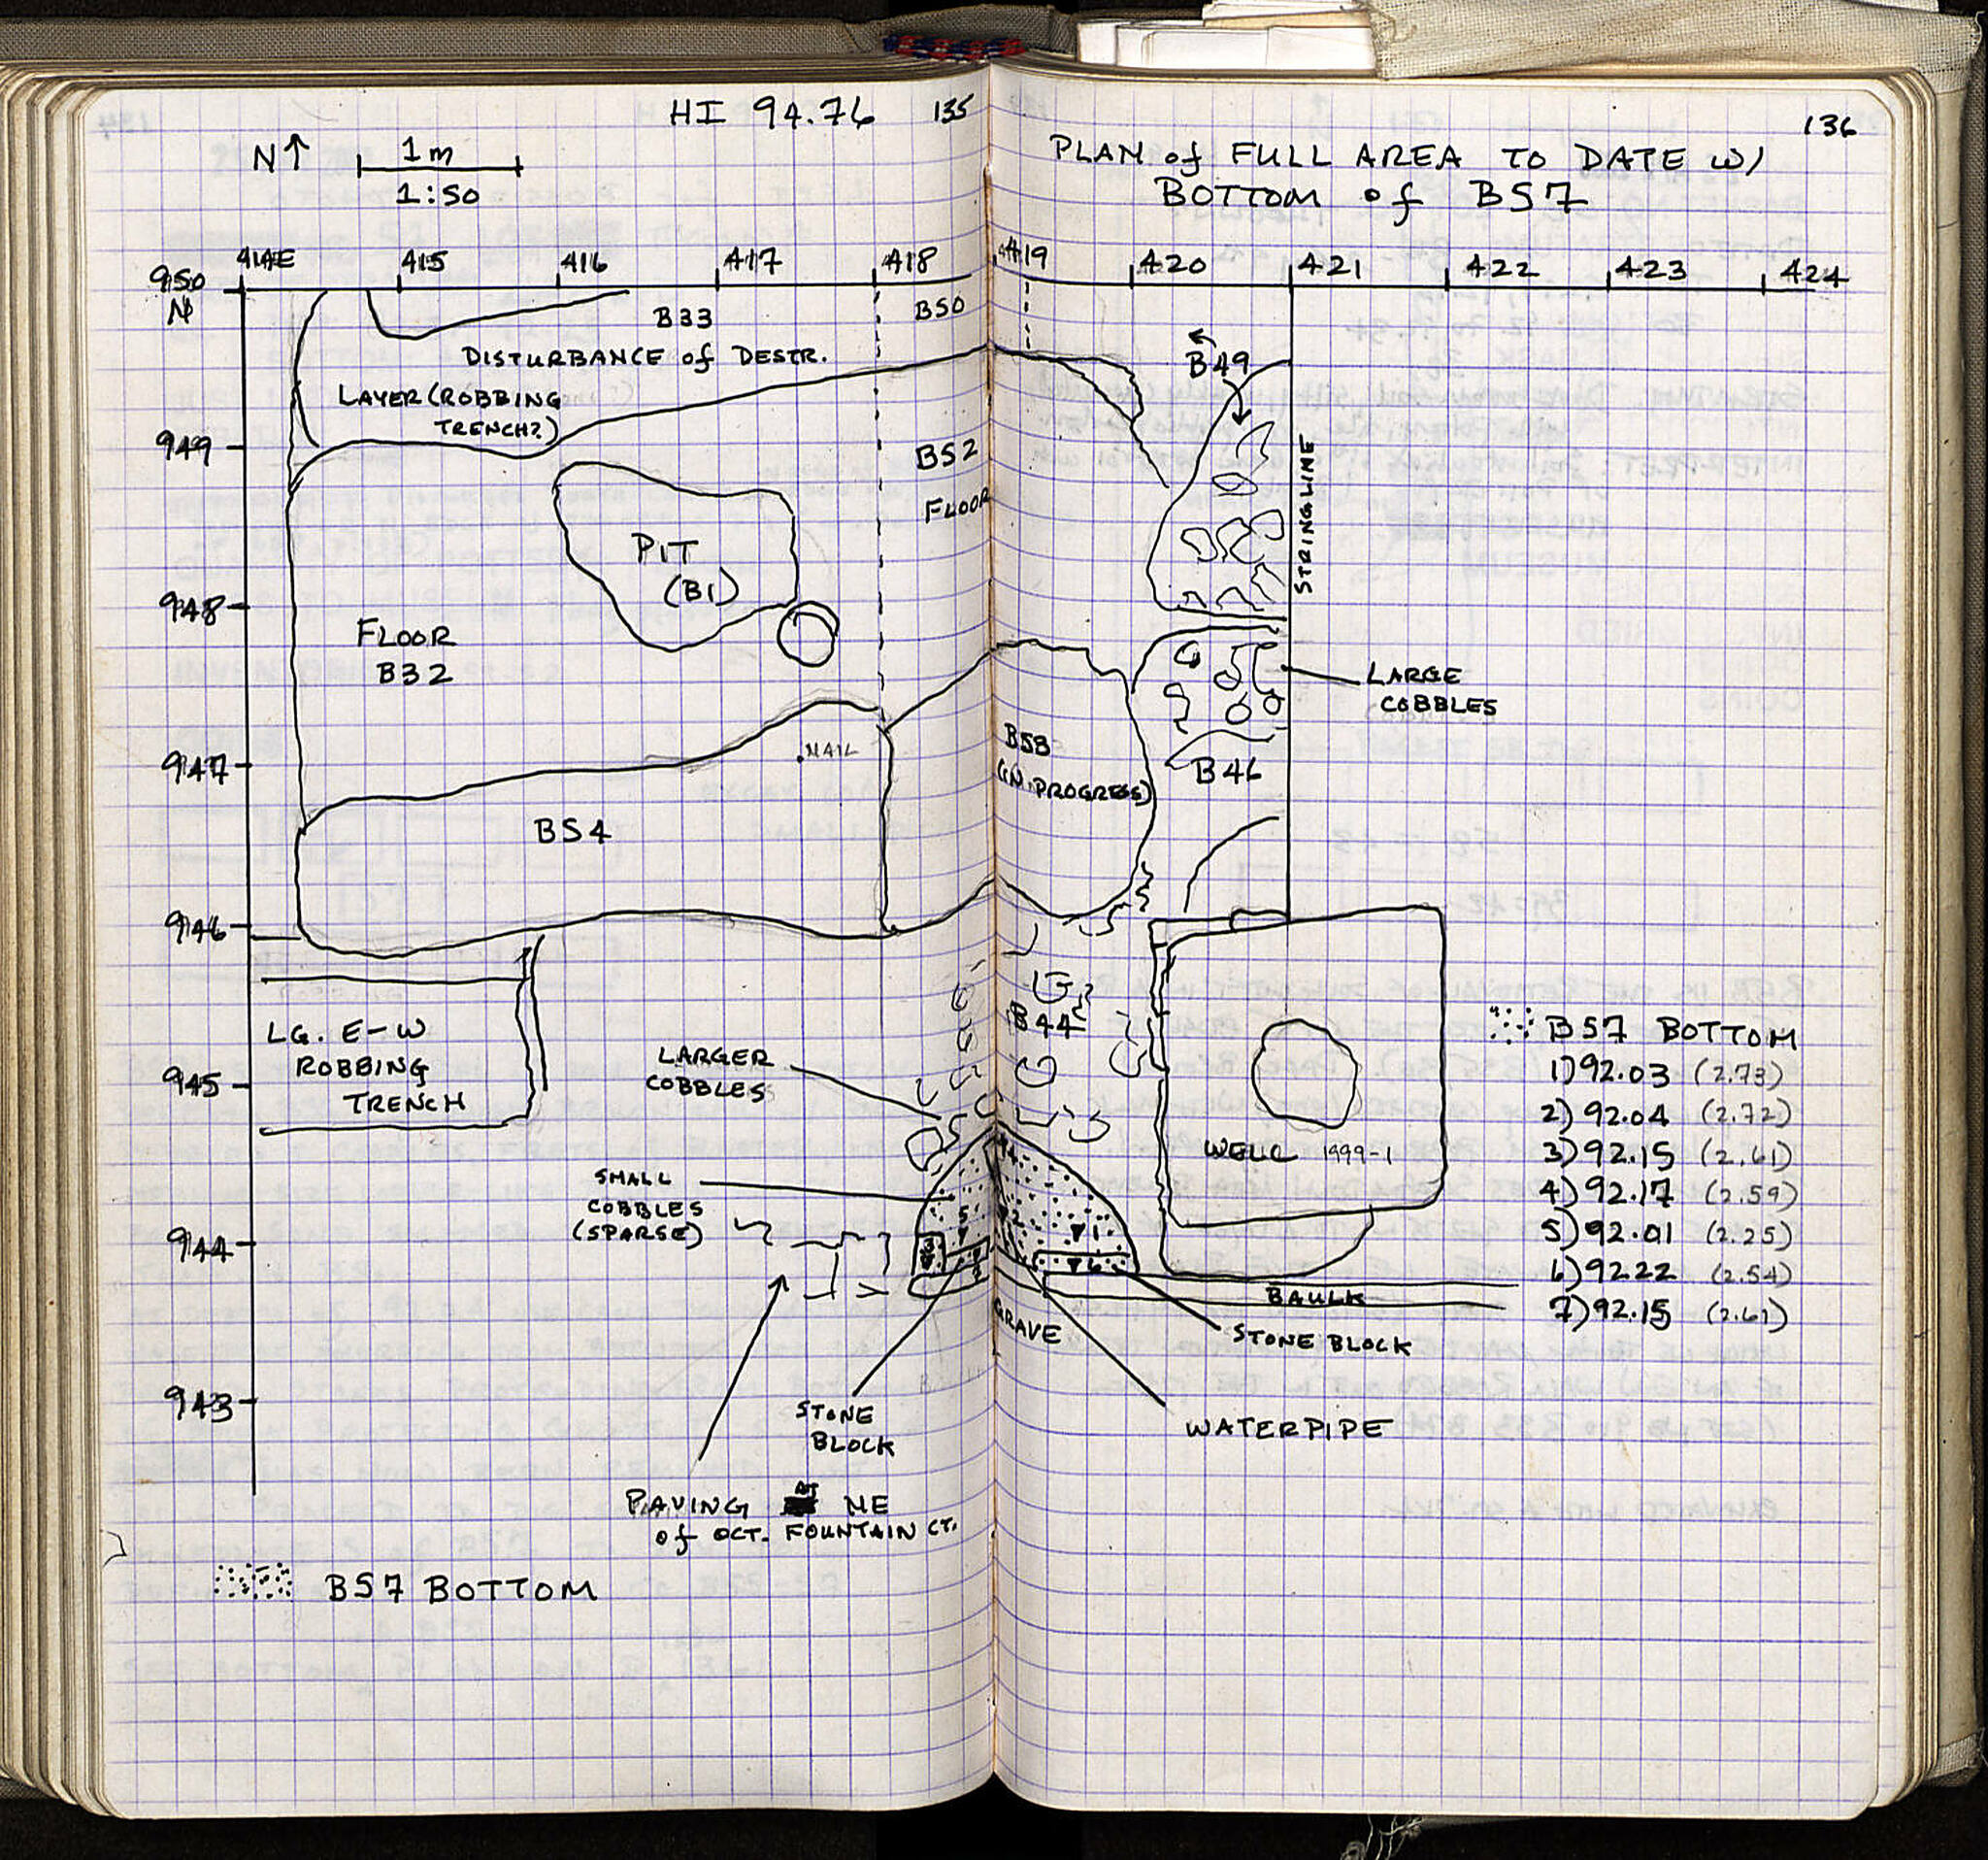 HI 94.76
135
N↑
1m
1:50
950
N
414E
415
416
417
418
B33
B50
DISTURBANCE of DESTR.
LAYER (ROBBING
TRENCH?)
949
B52
FLOOR
PIT
(B1)
948
FLOOR
B32
947
.NAIL
B54
946
LG. E-W
ROBBING
TRENCH
945
LARGER
COBBLES
SMALL
COBBLES
(SPARSE)
944
5
3
943
STONE
BLOCK
PAVING AT NE
of OCT. FOUNTAIN CT.
B57 BOTTOM
136
PLAN of FULL AREA TO DATE W/
BOTTOM of B57
419
420
421
422
423
424
B49
STRINGLINE
LARGE
COBBLES
B58
(IN PROGRESS)
B46
B44
WELL 1999-1
4
2
1
6
BAULK
GRAVE
STONE BLOCK
WATERPIPE
B57 BOTTOM
1) 92.03 (2.73)
2) 92.04 (2.72)
3) 92.15 (2.61)
4) 92.17 (2.59)
5) 92.01 (2.25)
6) 92.22 (2.54)
7) 92.15 (2.61)